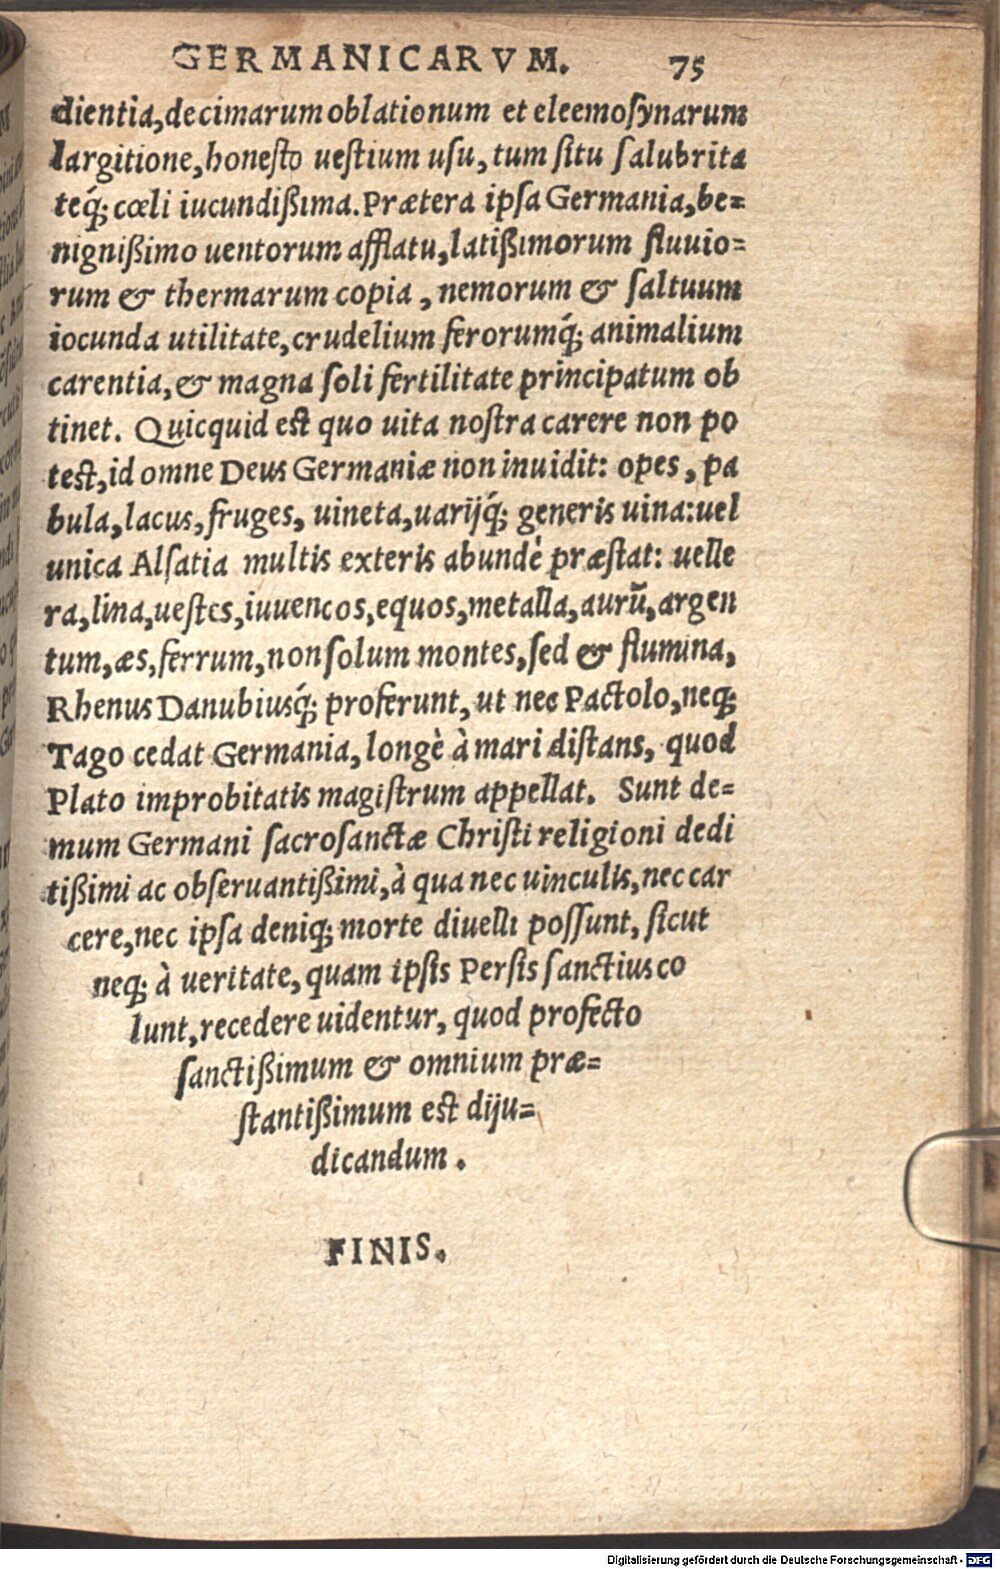 GERMANICARVM. 75
dientia, decimarum oblationum et eleemosynarum
largitione, honesto uestium usu, tum situ salubrita
teq́; cœli iucundißima. Prætera ipsa Germania, be=
nignißimo uentorum afflatu, latißimorum fluuio=
rum & thermarum copia, nemorum & saltuum
iocunda utilitate, crudelium ferorumq́; animalium
carentia, & magna soli fertilitate principatum ob
tinet. Quicquid est quo uita nostra carere non po
test, id omne Deus Germaniæ non inuidit: opes, pa
bula, lacus, fruges, uineta, uarijq́; generis uina: uel
unica Alsatia multis exteris abundè præstat: uelle
ra, lina, uestes, iuuencos, equos, metalla, aurū, argen
tum, æs, ferrum, non solum montes, sed & flumina,
Rhenus Danubiusq́; proferunt, ut nec Pactolo, neq;
Tago cedat Germania, longè à mari distans, quod
Plato improbitatis magistrum appellat. Sunt de=
mum Germani sacrosanctæ Christi religioni dedi
tißimi ac obseruantißimi, à qua nec uinculis, nec car
cere, nec ipsa deniq; morte diuelli possunt, sicut
neq; à ueritate, quam ipsis Persis sanctius co
lunt, recedere uidentur, quod profecto
sanctißimum & omnium præ=
stantißimum est diju=
dicandum.
FINIS.
Digitalisierung gefördert durch die Deutsche Forschungsgemeinschaft - DFG